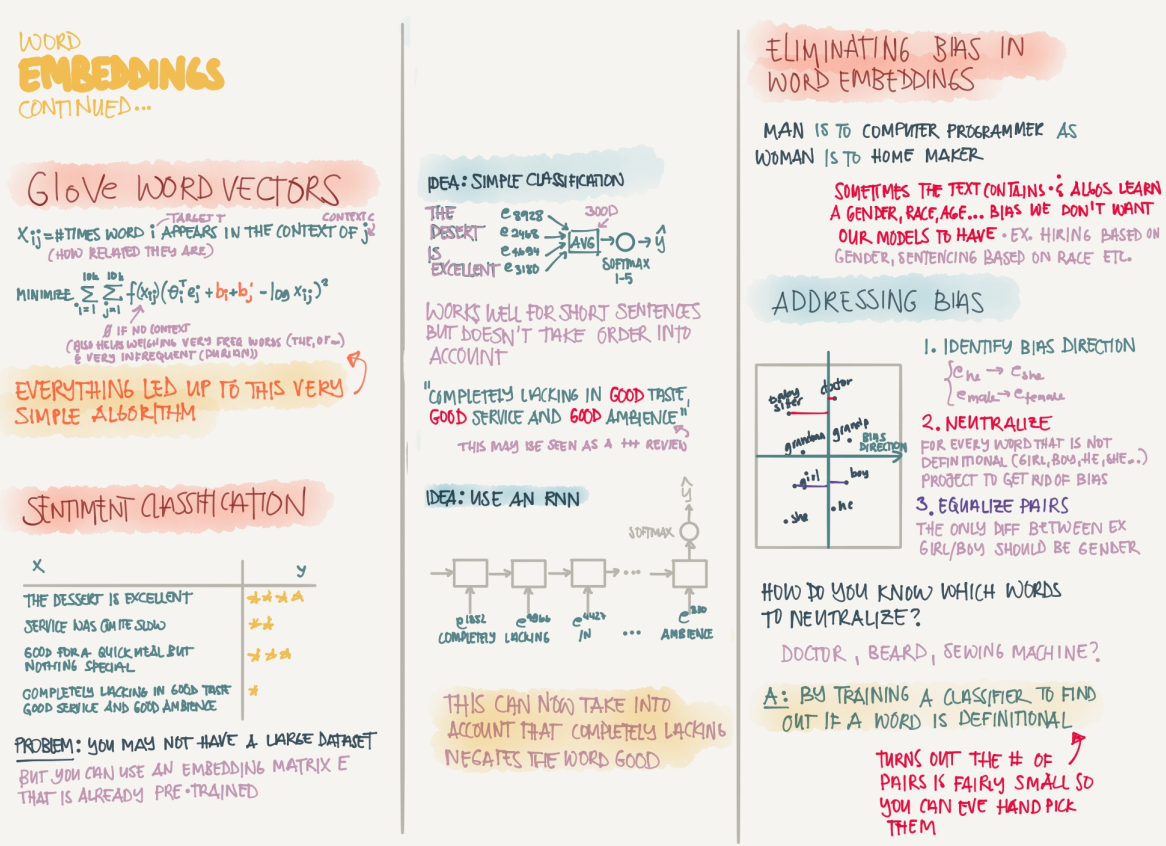 WORD
EMBEDDINGS
CONTINUED...
GloVe WORD VECTORS
TARGET T
CONTEXT C
Xij = # TIMES WORD i APPEARS IN THE CONTEXT OF j
(HOW RELATED THEY ARE)
10k 10k
MINIMIZE Σ Σ f(Xij)(θiᵀej + bi + b'j - log Xij)²
i=1 j=1
Ø IF NO CONTEXT
(ALSO HELPS WEIGHING VERY FREQ WORDS (THE, OF...)
& VERY INFREQUENT (DURIAN))
EVERYTHING LED UP TO THIS VERY
SIMPLE ALGORITHM
SENTIMENT CLASSIFICATION
X y
THE DESSERT IS EXCELLENT ★★★★
SERVICE WAS QUITE SLOW ★★
GOOD FOR A QUICK MEAL BUT ★★★
NOTHING SPECIAL
COMPLETELY LACKING IN GOOD TASTE ★
GOOD SERVICE AND GOOD AMBIENCE
PROBLEM: YOU MAY NOT HAVE A LARGE DATASET
BUT YOU CAN USE AN EMBEDDING MATRIX E
THAT IS ALREADY PRE-TRAINED
IDEA: SIMPLE CLASSIFICATION
THE e8928
DESERT e2468
IS e4694
EXCELLENT e3180
300D
AVG
ŷ
SOFTMAX
1-5
WORKS WELL FOR SHORT SENTENCES
BUT DOESN'T TAKE ORDER INTO
ACCOUNT
"COMPLETELY LACKING IN GOOD TASTE,
GOOD SERVICE AND GOOD AMBIENCE"
THIS MAY BE SEEN AS A +++ REVIEW
IDEA: USE AN RNN
ŷ
SOFTMAX
...
e1852 e4966 e4427 e330
COMPLETELY LACKING IN ... AMBIENCE
THIS CAN NOW TAKE INTO
ACCOUNT THAT COMPLETELY LACKING
NEGATES THE WORD GOOD
ELIMINATING BIAS IN
WORD EMBEDDINGS
MAN IS TO COMPUTER PROGRAMMER AS
WOMAN IS TO HOME MAKER
SOMETIMES THE TEXT CONTAINS · & ALGOS LEARN
A GENDER, RACE, AGE... BIAS WE DON'T WANT
OUR MODELS TO HAVE · EX. HIRING BASED ON
GENDER, SENTENCING BASED ON RACE ETC.
ADDRESSING BIAS
baby
sitter
doctor
grandma
grandp
BIAS
DIRECTION
girl
boy
she
he
1. IDENTIFY BIAS DIRECTION
ehe → eshe
emale → efemale
2. NEUTRALIZE
FOR EVERY WORD THAT IS NOT
DEFINITIONAL (GIRL, BOY, HE, SHE..)
PROJECT TO GET RID OF BIAS
3. EQUALIZE PAIRS
THE ONLY DIFF BETWEEN EX
GIRL/BOY SHOULD BE GENDER
HOW DO YOU KNOW WHICH WORDS
TO NEUTRALIZE?
DOCTOR, BEARD, SEWING MACHINE?
A: BY TRAINING A CLASSIFIER TO FIND
OUT IF A WORD IS DEFINITIONAL
TURNS OUT THE # OF
PAIRS IS FAIRLY SMALL SO
YOU CAN EVE HAND PICK
THEM